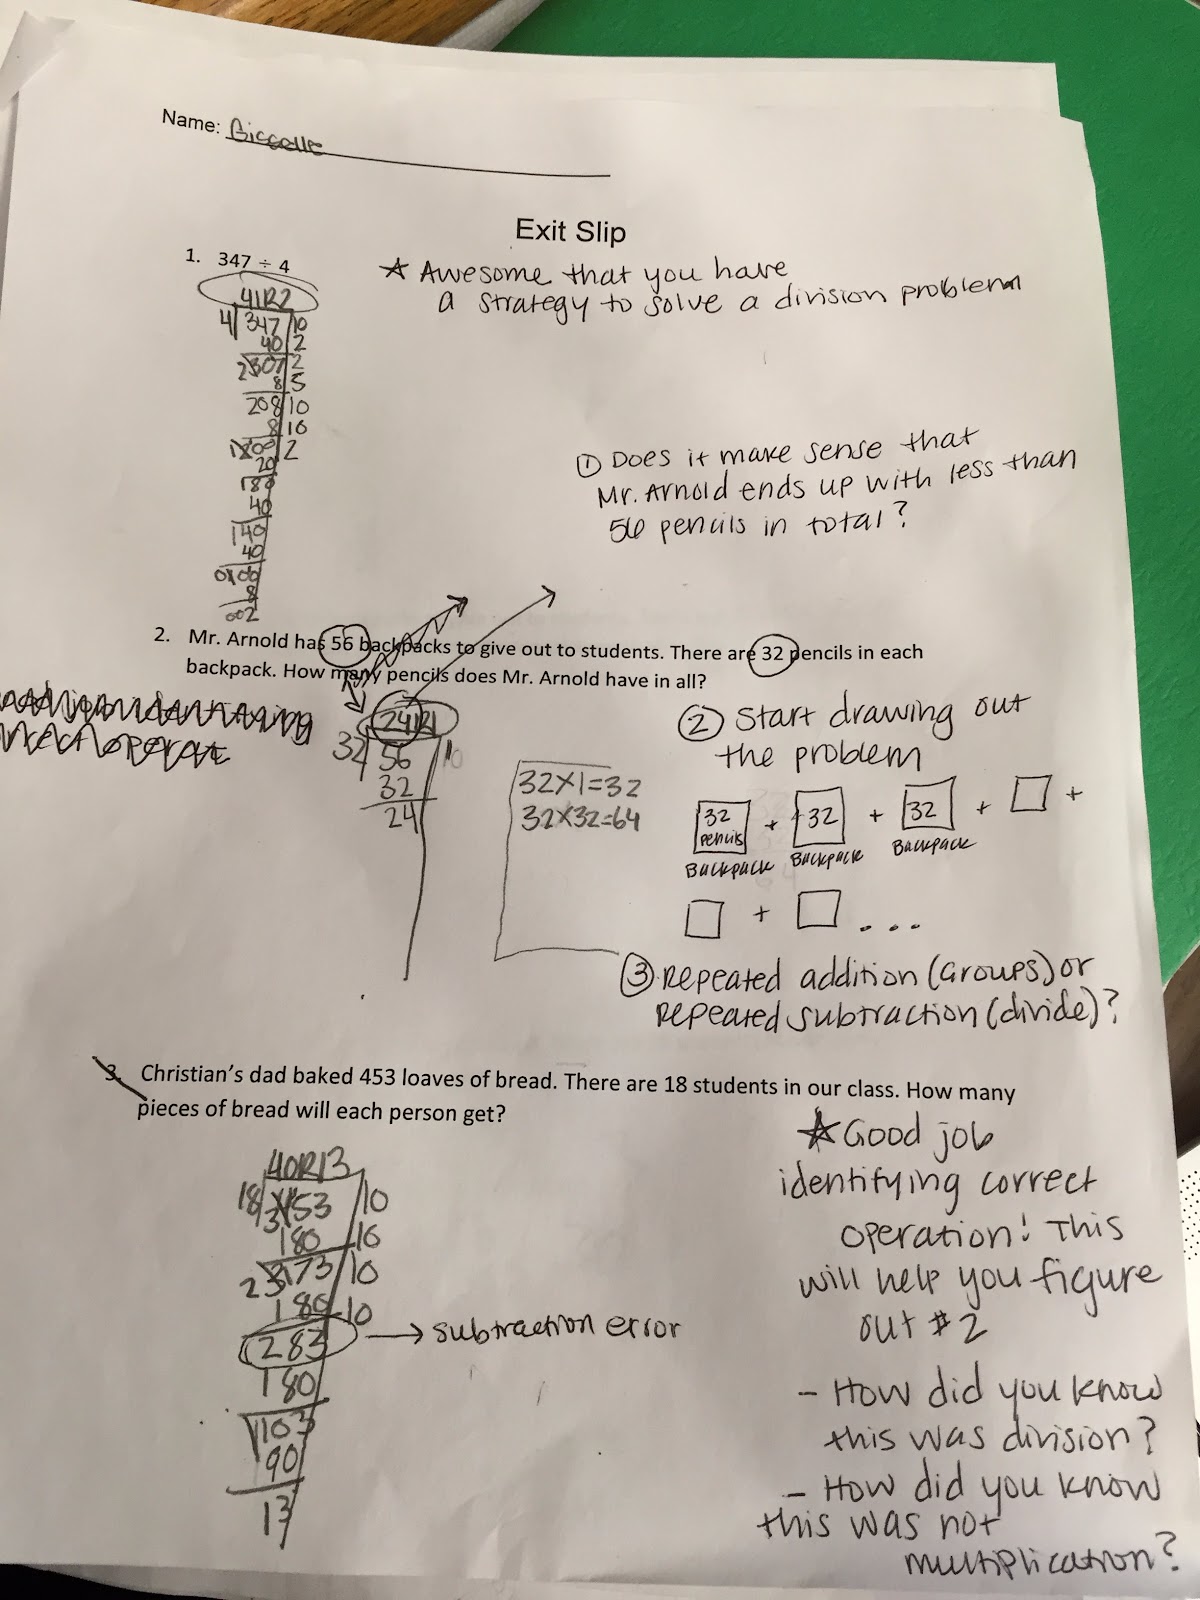 Name: Gisselle
Exit Slip
1. 347 ÷ 4
41R2
4 347 10
40 2
2307 2
8 5
208 10
8 10
1200 2
20
180
40
140
40
0106
002
☆ Awesome that you have
a strategy to solve a division problem
① Does it make sense that
Mr. Arnold ends up with less than
56 pencils in total?
2. Mr. Arnold has 56 backpacks to give out to students. There are 32 pencils in each
backpack. How many pencils does Mr. Arnold have in all?
24R1
32 56
32
24
32X1=32
32X32=64
② Start drawing out
the problem
32 pencils + 32 + 32 + +
Backpack Backpack Backpack
+ ...
③ Repeated addition (Groups) or
repeated subtraction (divide)?
3. Christian's dad baked 453 loaves of bread. There are 18 students in our class. How many
pieces of bread will each person get?
40R13
18 3453 10
180 10
2373 10
180 10
283 → subtraction error
180
103
90
13
☆ Good job
identifying correct
operation! This
will help you figure
out #2
- How did you know
this was division?
- How did you know
this was not
multiplication?